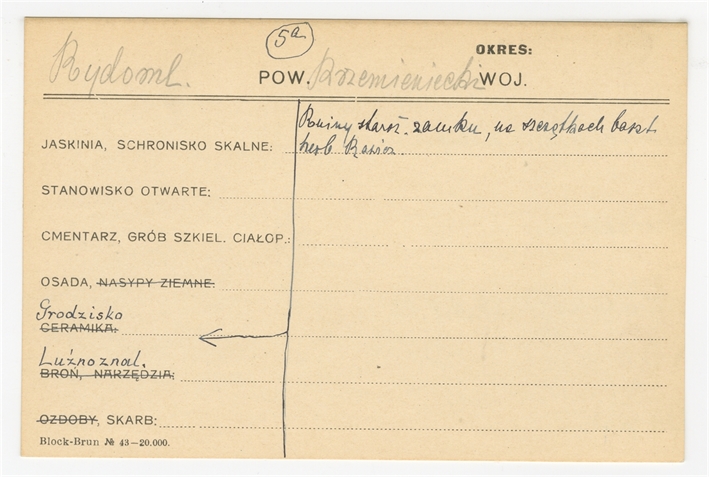 5a
OKRES:
Rydoml. POW. Krzemieniecki WOJ.
Ruiny staroż. zamku, na szczątkach baszt
JASKINIA, SCHRONISKO SKALNE: herb Rawicz.
STANOWISKO OTWARTE:
CMENTARZ, GRÓB SZKIEL. CIAŁOP.:
OSADA, NASYPY ZIEMNE:
Grodzisko
CERAMIKA:
Luźno znal.
BROŃ, NARZĘDZIA:
OZDOBY, SKARB:
Block-Brun № 43—20.000.